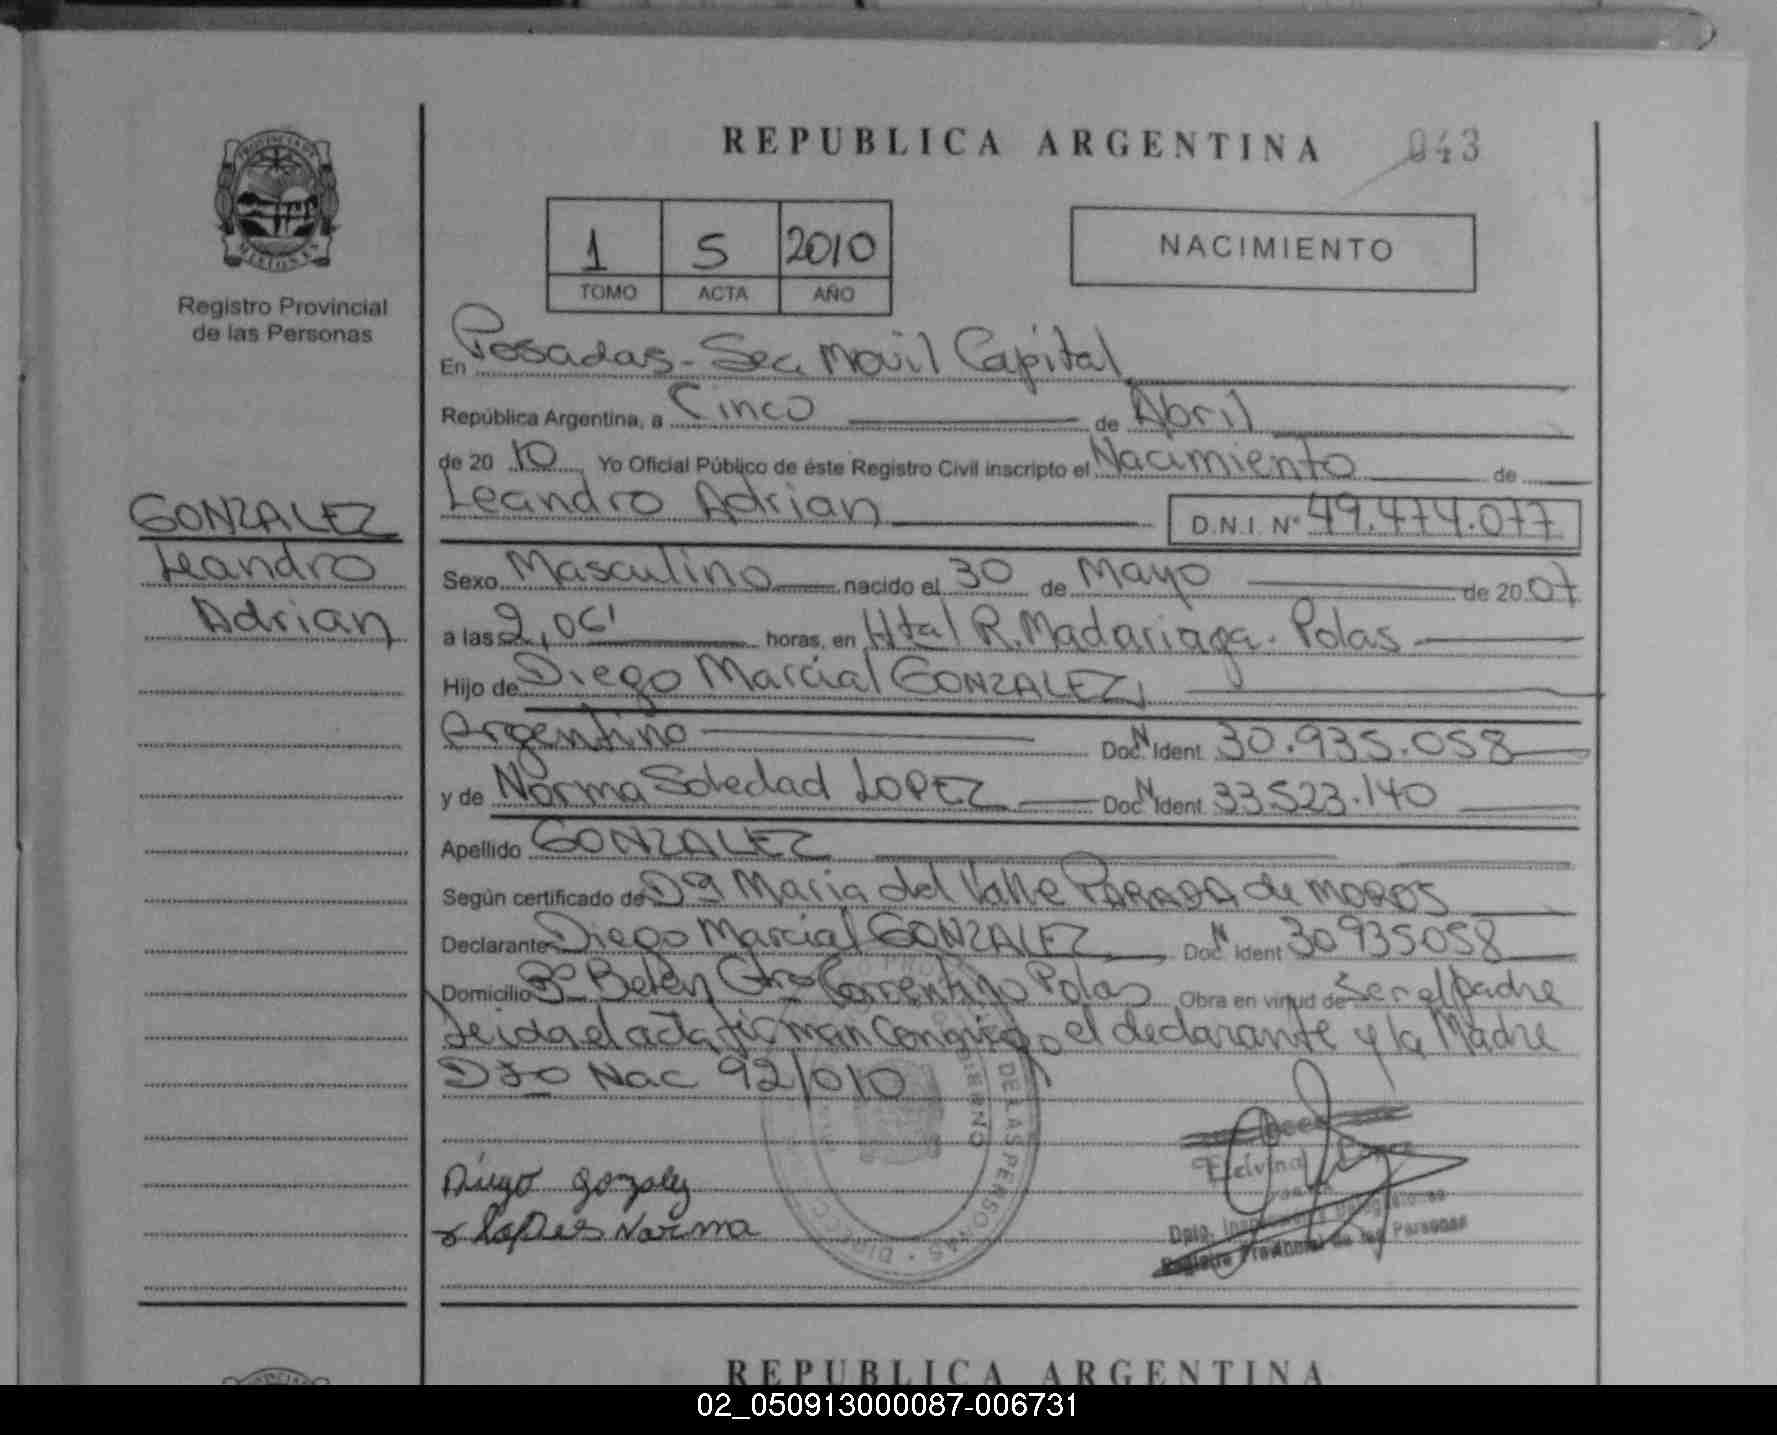 REPUBLICA ARGENTINA
043
1 5 2010
TOMO ACTA AÑO
NACIMIENTO
Registro Provincial
de las Personas
En Posadas - Sec Movil Capital
República Argentina, a Cinco de Abril
de 20 10 Yo Oficial Público de éste Registro Civil inscripto el Nacimiento de
GONZALEZ
Leandro
Adrian
Leandro Adrian D.N.I. N° 49.474.077
Sexo Masculino nacido el 30 de Mayo de 20 07
a las 2,06' horas, en Htal R. Madariaga - Pdas
Hijo de Diego Marcial GONZALEZ,
Argentino Doc. N Ident. 30.935.058
y de Norma Soledad LOPEZ Doc. N Ident. 33.523.140
Apellido GONZALEZ
Según certificado de Dª Maria del Valle PARADA de MOROS
Declarante Diego Marcial GONZALEZ Doc. N Ident 30935058
Domicilio Bº Belén Correntino Pdas Obra en virtud de Ser el padre
Leida el acta firman conmigo el declarante y la Madre
Nac 92/010
Diego Gonzalez
Lopes Norma
DE LAS PERSONAS
Registro Provincial de las Personas
REPUBLICA ARGENTINA
02_050913000087-006731